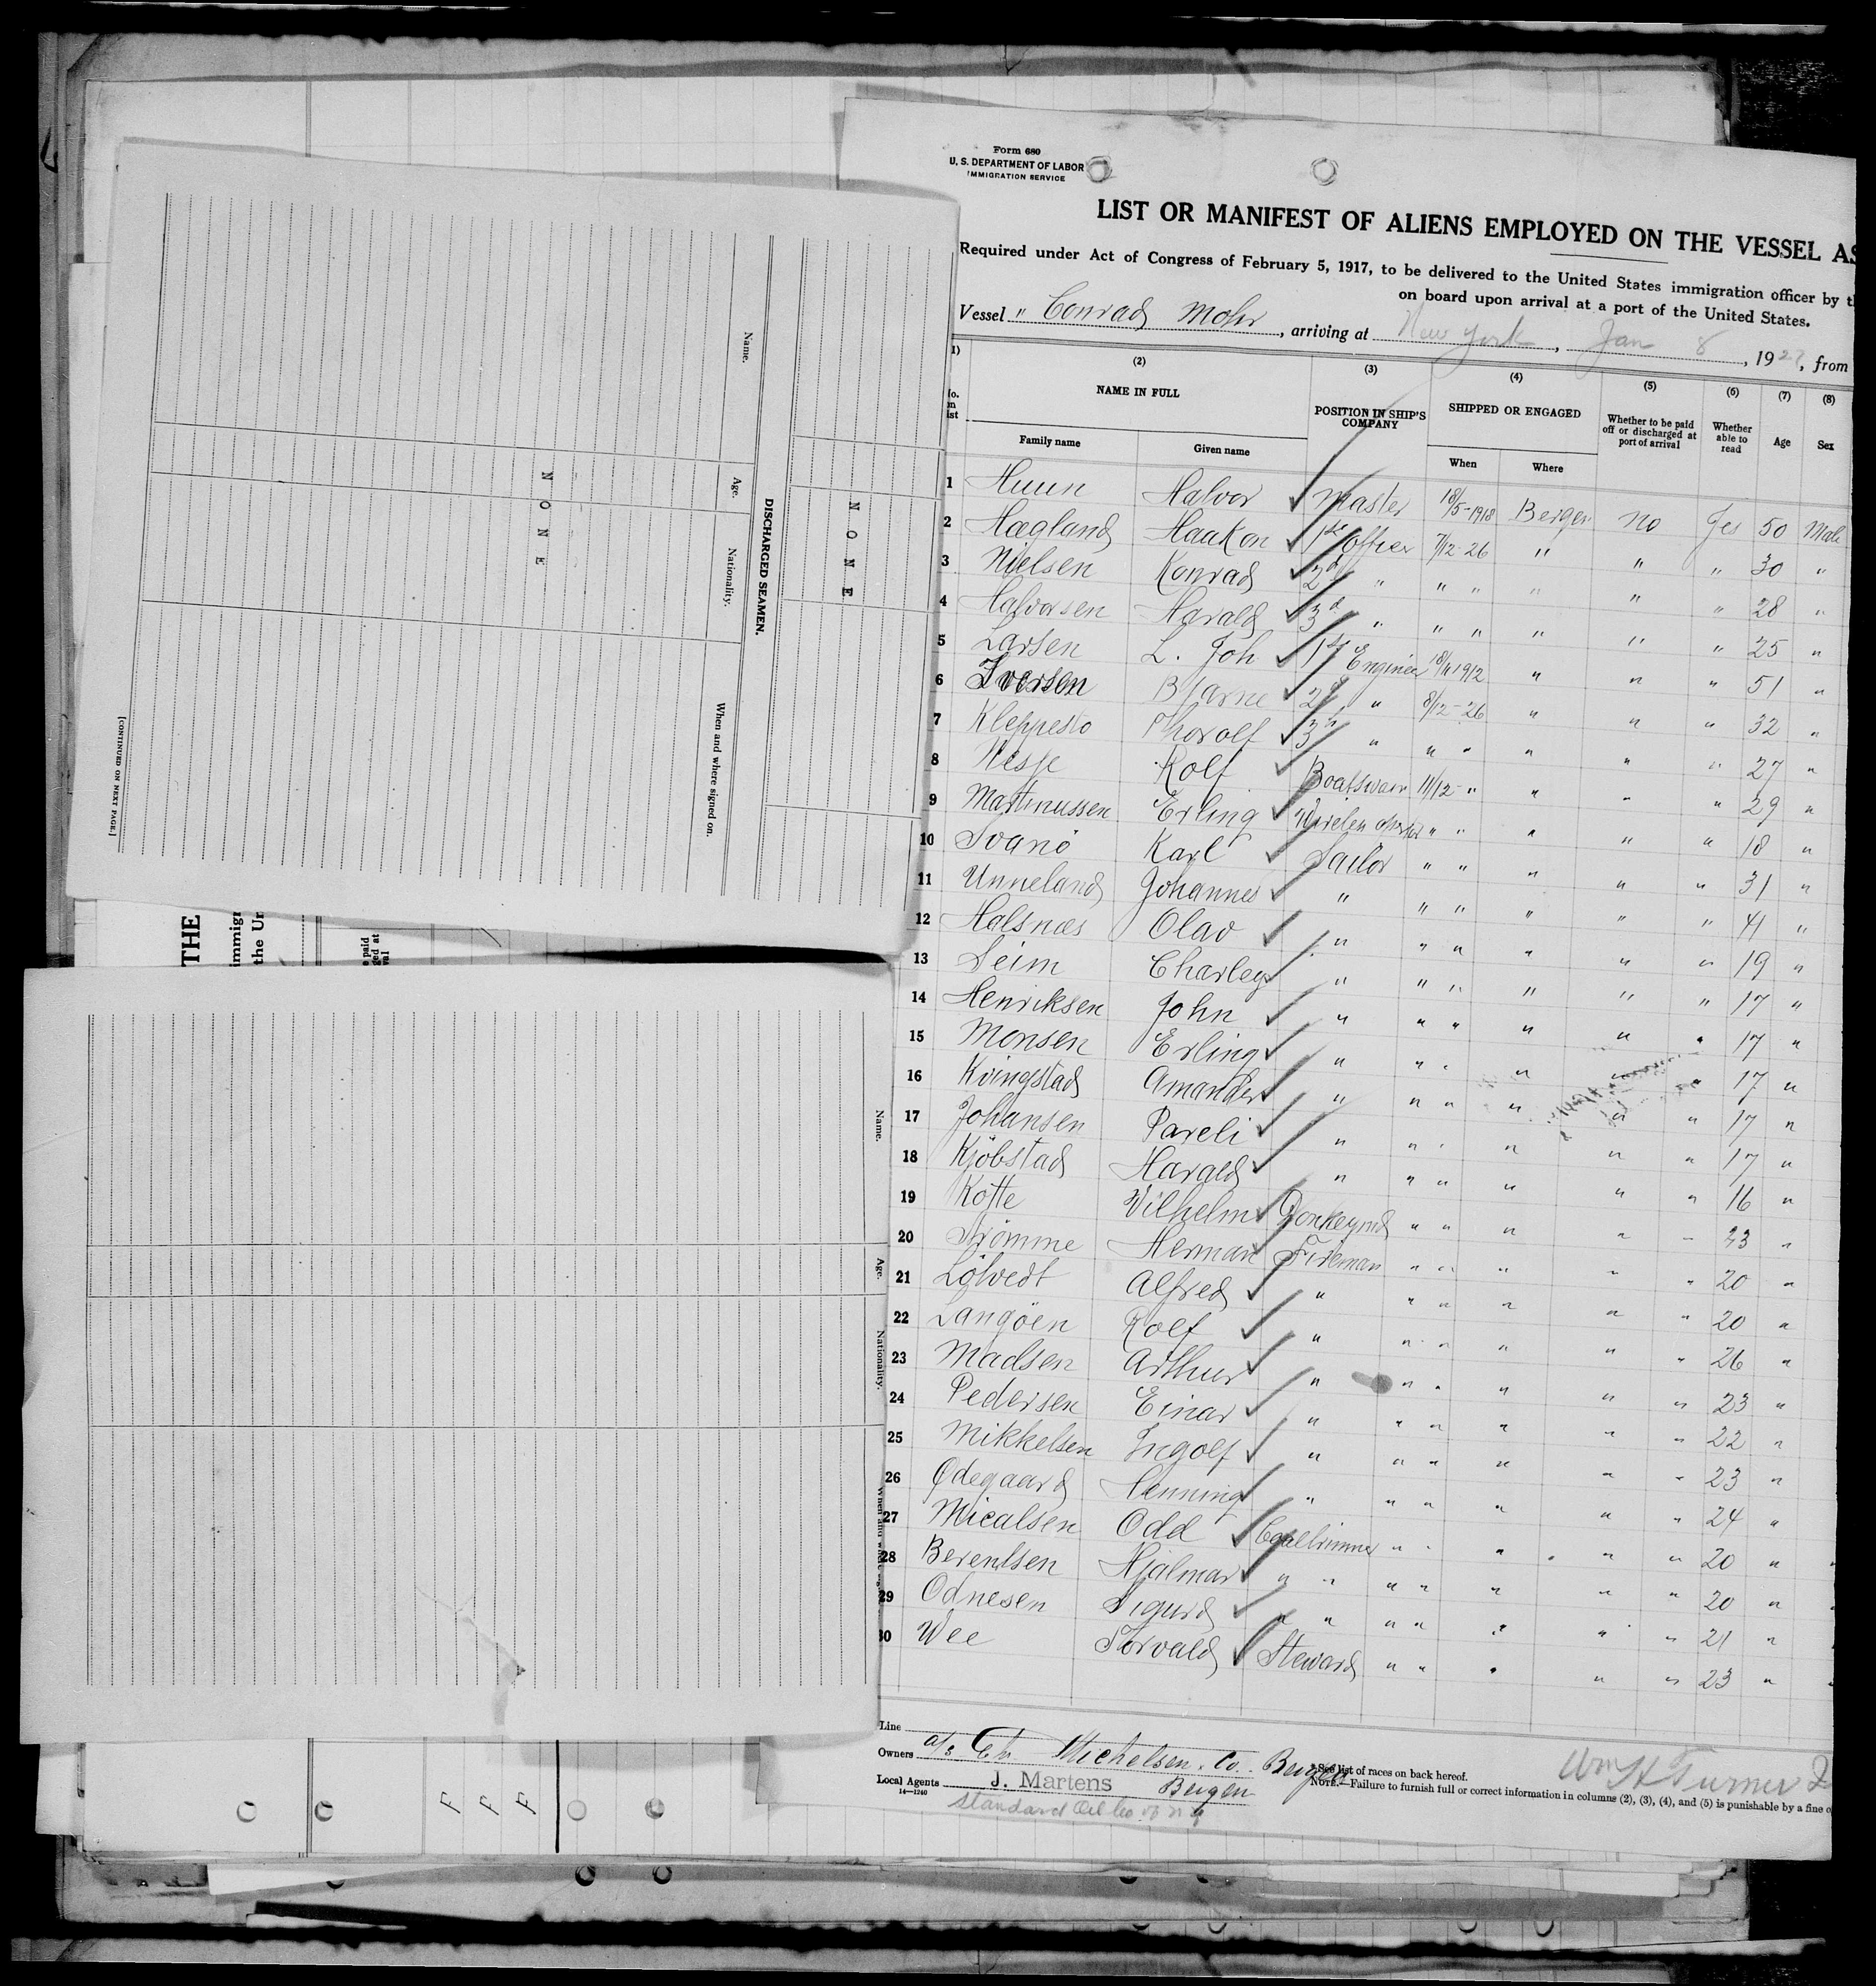 Form 680
U. S. DEPARTMENT OF LABOR
IMMIGRATION SERVICE
LIST OR MANIFEST OF ALIENS EMPLOYED ON THE VESSEL AS
Required under Act of Congress of February 5, 1917, to be delivered to the United States immigration officer by th
on board upon arrival at a port of the United States.
Vessel " Conrad Mohr, arriving at New York, Jan 8, 1927, from
(1) (2) (3) (4) (5) (6) (7) (8)
No. on list NAME IN FULL POSITION IN SHIP'S COMPANY SHIPPED OR ENGAGED Whether to be paid off or discharged at port of arrival Whether able to read Age Sex
Family name Given name When Where
1 Huun Halvor Master 18/5-1918 Bergen No Yes 50 Male
2 Hægland Haakon 1st Officer 7/12-26 " " " 30 "
3 Nielsen Konrad 2d " " " " " " 28 "
4 Halvorsen Harald 3d " " " " " " 25 "
5 Larsen L. Joh 1st Engineer 18/11 1912 " " " 51 "
6 Iversen Bjarne 2d " 8/12-26 " " " 32 "
7 Kleppestø Thorolf 3d " " " " " " 27 "
8 Nesse Rolf Boatswain 11/12- " " " " 29 "
9 Martinussen Erling Wireless " " " " " 18 "
10 Svanö Karl Sailor " " " " " 31 "
11 Unneland Johannes " " " " " " 41 "
12 Halsnæs Olav " " " " " " 19 "
13 Seim Charley " " " " " " 17 "
14 Henriksen John " " " " " " 17 "
15 Monsen Erling " " " " " " 17 "
16 Kvingstad Amander " " " " " " 17 "
17 Johansen Pareli " " " " " " 17 "
18 Kjöbstad Harald " " " " " " 16 "
19 Kotte Vilhelm Donkeymd " " " " " 23 "
20 Strömme Herman Fireman " " " " " 20 "
21 Lötvedt Alfred " " " " " " 20 "
22 Langöen Rolf " " " " " " 26 "
23 Madsen Arthur " " " " " " 23 "
24 Pedersen Einar " " " " " " 22 "
25 Mikkelsen Ingolf " " " " " " 23 "
26 Ødegaard Henning " " " " " " 24 "
27 Micalsen Odd " " " " " 20 "
28 Berentsen Hjalmar " " " " " " " 20 "
29 Odnesen Sigurd " " " " " " " 21 "
30 Wee Torvald Steward " " " " " 23 "
Line
Owners a/s Chr. Michelsen & Co. Bergen
Local Agents J. Martens Bergen
14—1240
Standard Oil Co of N.Y.
See list of races on back hereof.
NOTE.—Failure to furnish full or correct information in columns (2), (3), (4), and (5) is punishable by a fine o
Wm H Turner
NONE
NONE
DISCHARGED SEAMEN.
Name. Age. Nationality. When and where signed on.
[CONTINUED ON NEXT PAGE.]
THE
immigr
the Un
paid
ged at
val
Name. Age. Nationality.
F F F